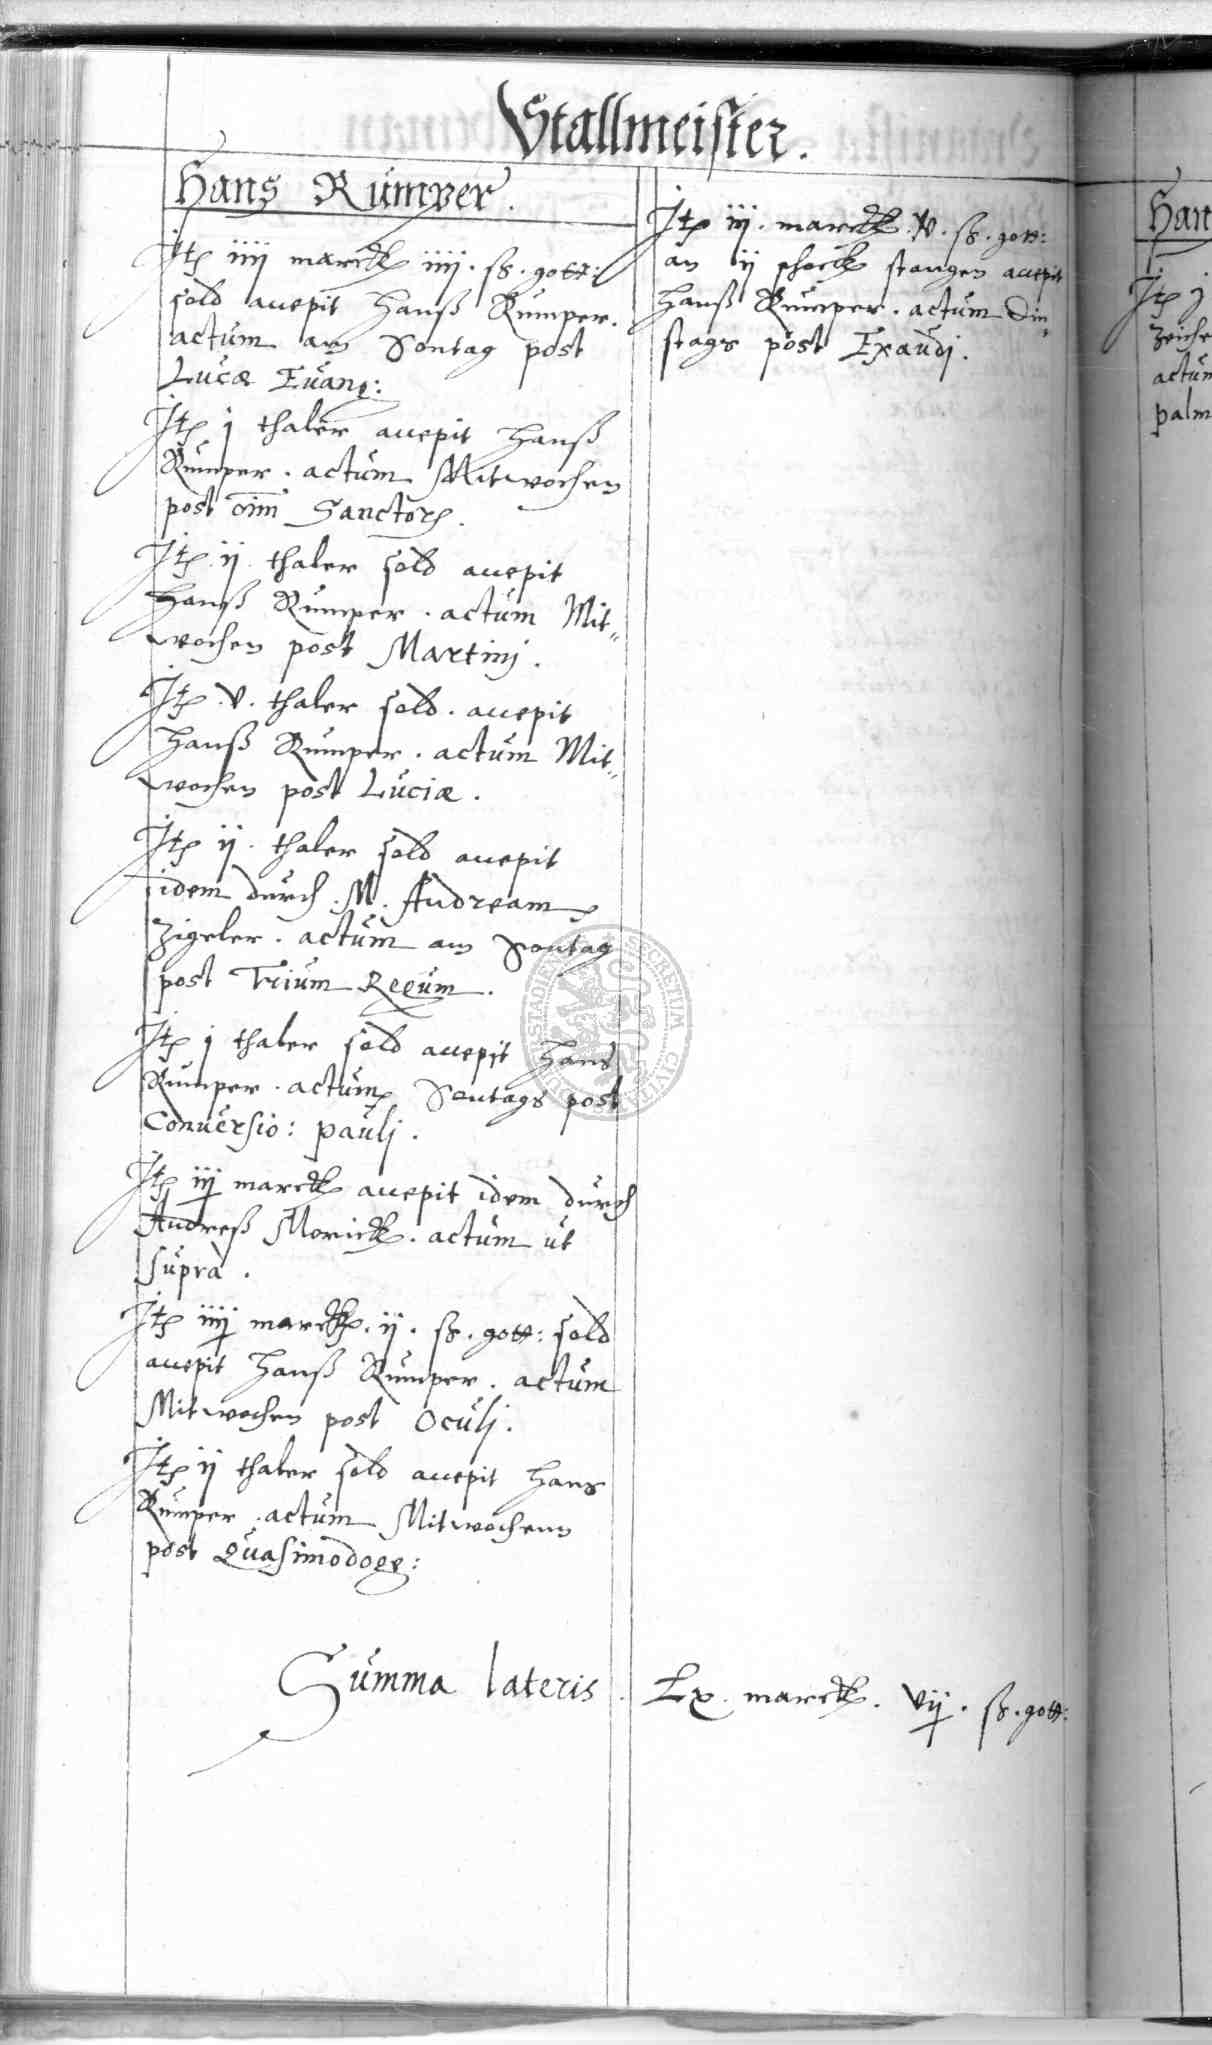 Stallmeister.
Hans Rumper.
Itē iiij marck iiij. ß. gott:
sold accepit Hanß Rumper.
actum am Sontag post
Lucæ Euang:
Itē j thaler accepit Hanß
Rumper. actum Mitwochen
post oīm Sanctorū.
Itē ij. thaler sold accepit
Hanß Rumper. actum Mit⸗
wochen post Martinj.
Itē .v. thaler sold. accepit
Hanß Rumper. actum Mit⸗
wochen post Luciæ.
Itē ij. thaler sold accepit
idem durch .M. Andream
Zigeler. actum am Sontag
post Trium Regum.
Itē j thaler sold accepit Hans
Rumper. actum Sontags post
Conuersio: paulj.
Itē iij marck accepit idem durch
Andreß Morick. actum ut
supra.
Itē iiij marck. ij. ß. gott: sold
accepit Hanß Rumper. actum
Mitwochen post Oculj.
Itē ij thaler sold accepit Hans
Rumper. actum Mitwochenn
post Quasimodoge:
Itē iij. marck. v. ß. gott:
an ij schock stangen accepit
Hanß Rumper. actum Din⸗
stags post Exaudj.
Summa lateris. Lx. marck. vij. ß. gott:
Han
Itē j
Zeiche
actum
palm
SECRETUM CIVITATIS DUDERSTADIENSIS